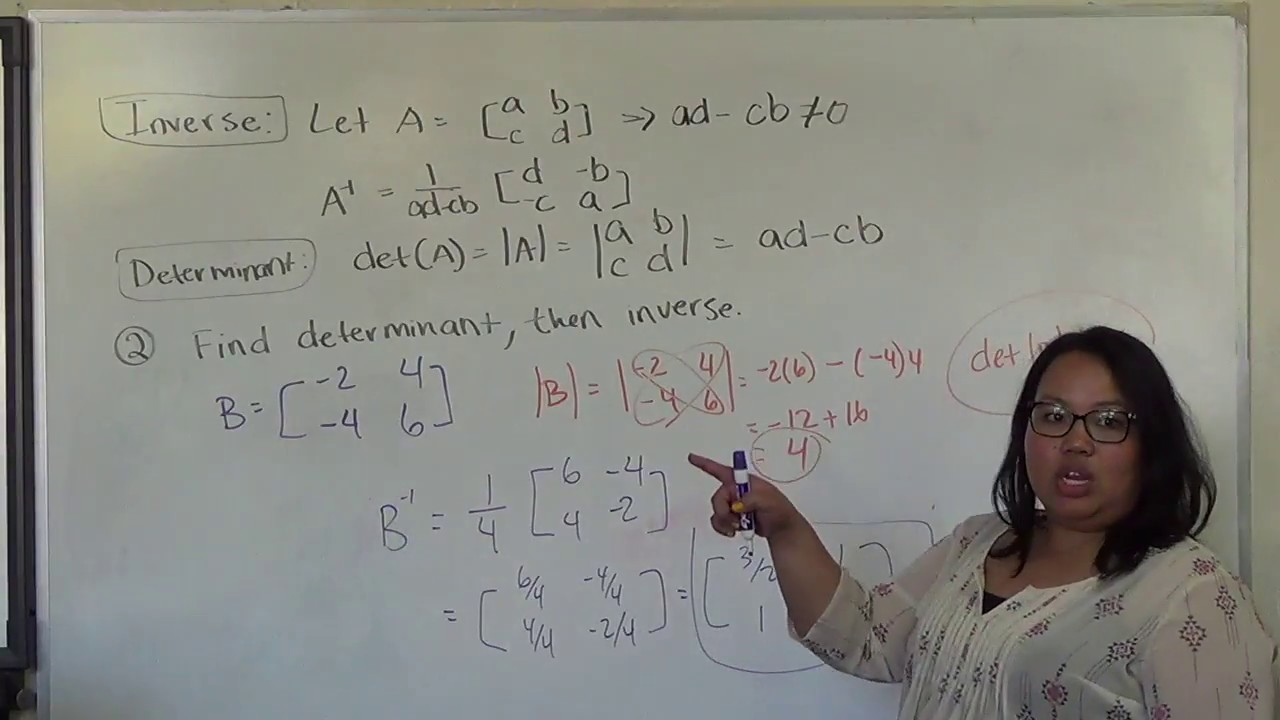 Inverse: Let A = [a b; c d] → ad - cb ≠ 0
A⁻¹ = 1/(ad-cb) [d -b; -c a]
Determinant: det(A) = |A| = |a b; c d| = ad-cb
② Find determinant, then inverse.
B = [-2 4; -4 6] |B| = |-2 4; -4 6| = -2(6) - (-4)4
= -12 + 16
= 4
det
B⁻¹ = 1/4 [6 -4; 4 -2]
= [6/4 -4/4; 4/4 -2/4] = [3/2; 1